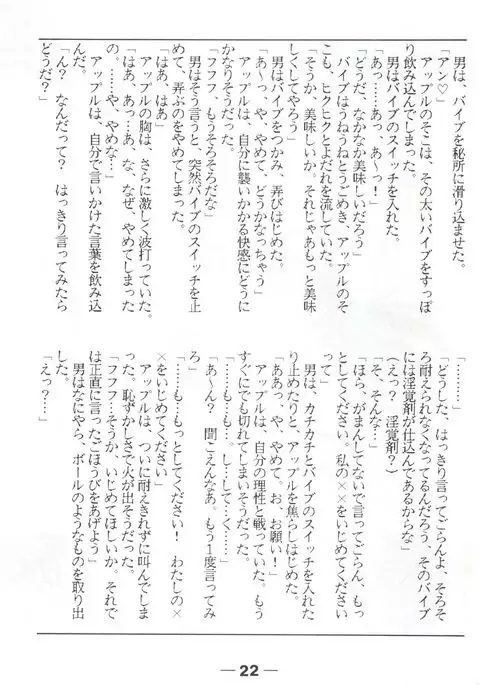 男は、バイブを秘所に滑り込ませた。
「アン♡」
アップルのそこは、その太いバイブをすっぽ
り飲み込んでしまった。
男はバイブのスイッチを入れた。
「あっ……あっ、あ〜っ！」
「どうだ、なかなか美味しいだろう」
バイブはうねうねとうごめき、アップルのそ
こも、ヒクヒクとよだれを流していた。
「そうか、美味しいか。それじゃあもっと美味
しくしてやろう」
男はバイブをつかみ、弄びはじめた。
「あ〜っ、や、やめて、どうかなっちゃう」
アップルは、自分に襲いかかる快感にどうに
かなりそうだった。
「フフフ、もうそろそろだな」
男はそう言うと、突然バイブのスイッチを止
めて、弄ぶのをやめてしまった。
「はあ、はあ」
アップルの胸は、さらに激しく波打っていた。
「はあ、あっ…あ、な、なぜ、やめてしまった
の。……や、やめな…」
アップルは、自分で言いかけた言葉を飲み込
んだ。
「ん？　なんだって？　はっきり言ってみたら
どうだ？」
「………」
「どうした、はっきり言ってごらんよ、そろそ
ろ耐えられなくなってるんだろう、そのバイブ
には淫覚剤が仕込んであるからな」
（えっ？　淫覚剤？）
「そ、そんな…」
「ほら、がまんしてないで言ってごらん、もっ
としてください。私の××をいじめてください
って」
男は、カチカチとバイブのスイッチを入れた
り止めたりと、アップルを焦らしはじめた。
「ああっ、や、やめて。お、お願い！」
アップルは、自分の理性と戦っていた。もう
すぐにでも切れてしまいそうだった。
「……も…も…。し…して…く……」
「あ〜ん？　聞こえんなあ。もう１度言ってみ
ろ」
「……も…もっとしてください！　わたしの×
×をいじめてください」
アップルは、ついに耐えきれずに叫んでしま
った。恥ずかしさで火が出そうだった。
「フフフ…そうか、いじめてほしいか。それで
は正直に言ったごほうびをあげよう」
男はなにやら、ボールのようなものを取り出
した。
「えっ？…」
— 22 —